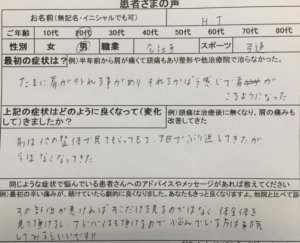 患者さまの声
お名前(無記名・イニシャルでも可) H.I
ご年齢 10代 20代 30代 40代 50代 60代 70代
性別 女 男 職業 会社員 スポーツ 弓道
最初の症状は?例)半年前から肩が痛くて頭痛もあり整形や他治療院で治らなかった。
たまに肩が外れる事があり それをかばう感じで肩が
こるようになった
上記の症状はどのように良くなって(変化して)きましたか?
例)頭痛は治療後に無くなり、肩の痛みも改善してきた
前は他の整体で見てもらっても、1日でぶり返してきたが
今はなくなってきた
同じような症状で悩んでいる患者さんへのアドバイスやメッセージがあれば教えてください
その部位が悪ければそこだけを見るのではなく 体全体を
見て頂けるし、アドバイスも頂けるので 悩んでいる方は来院
してみるといいです!!